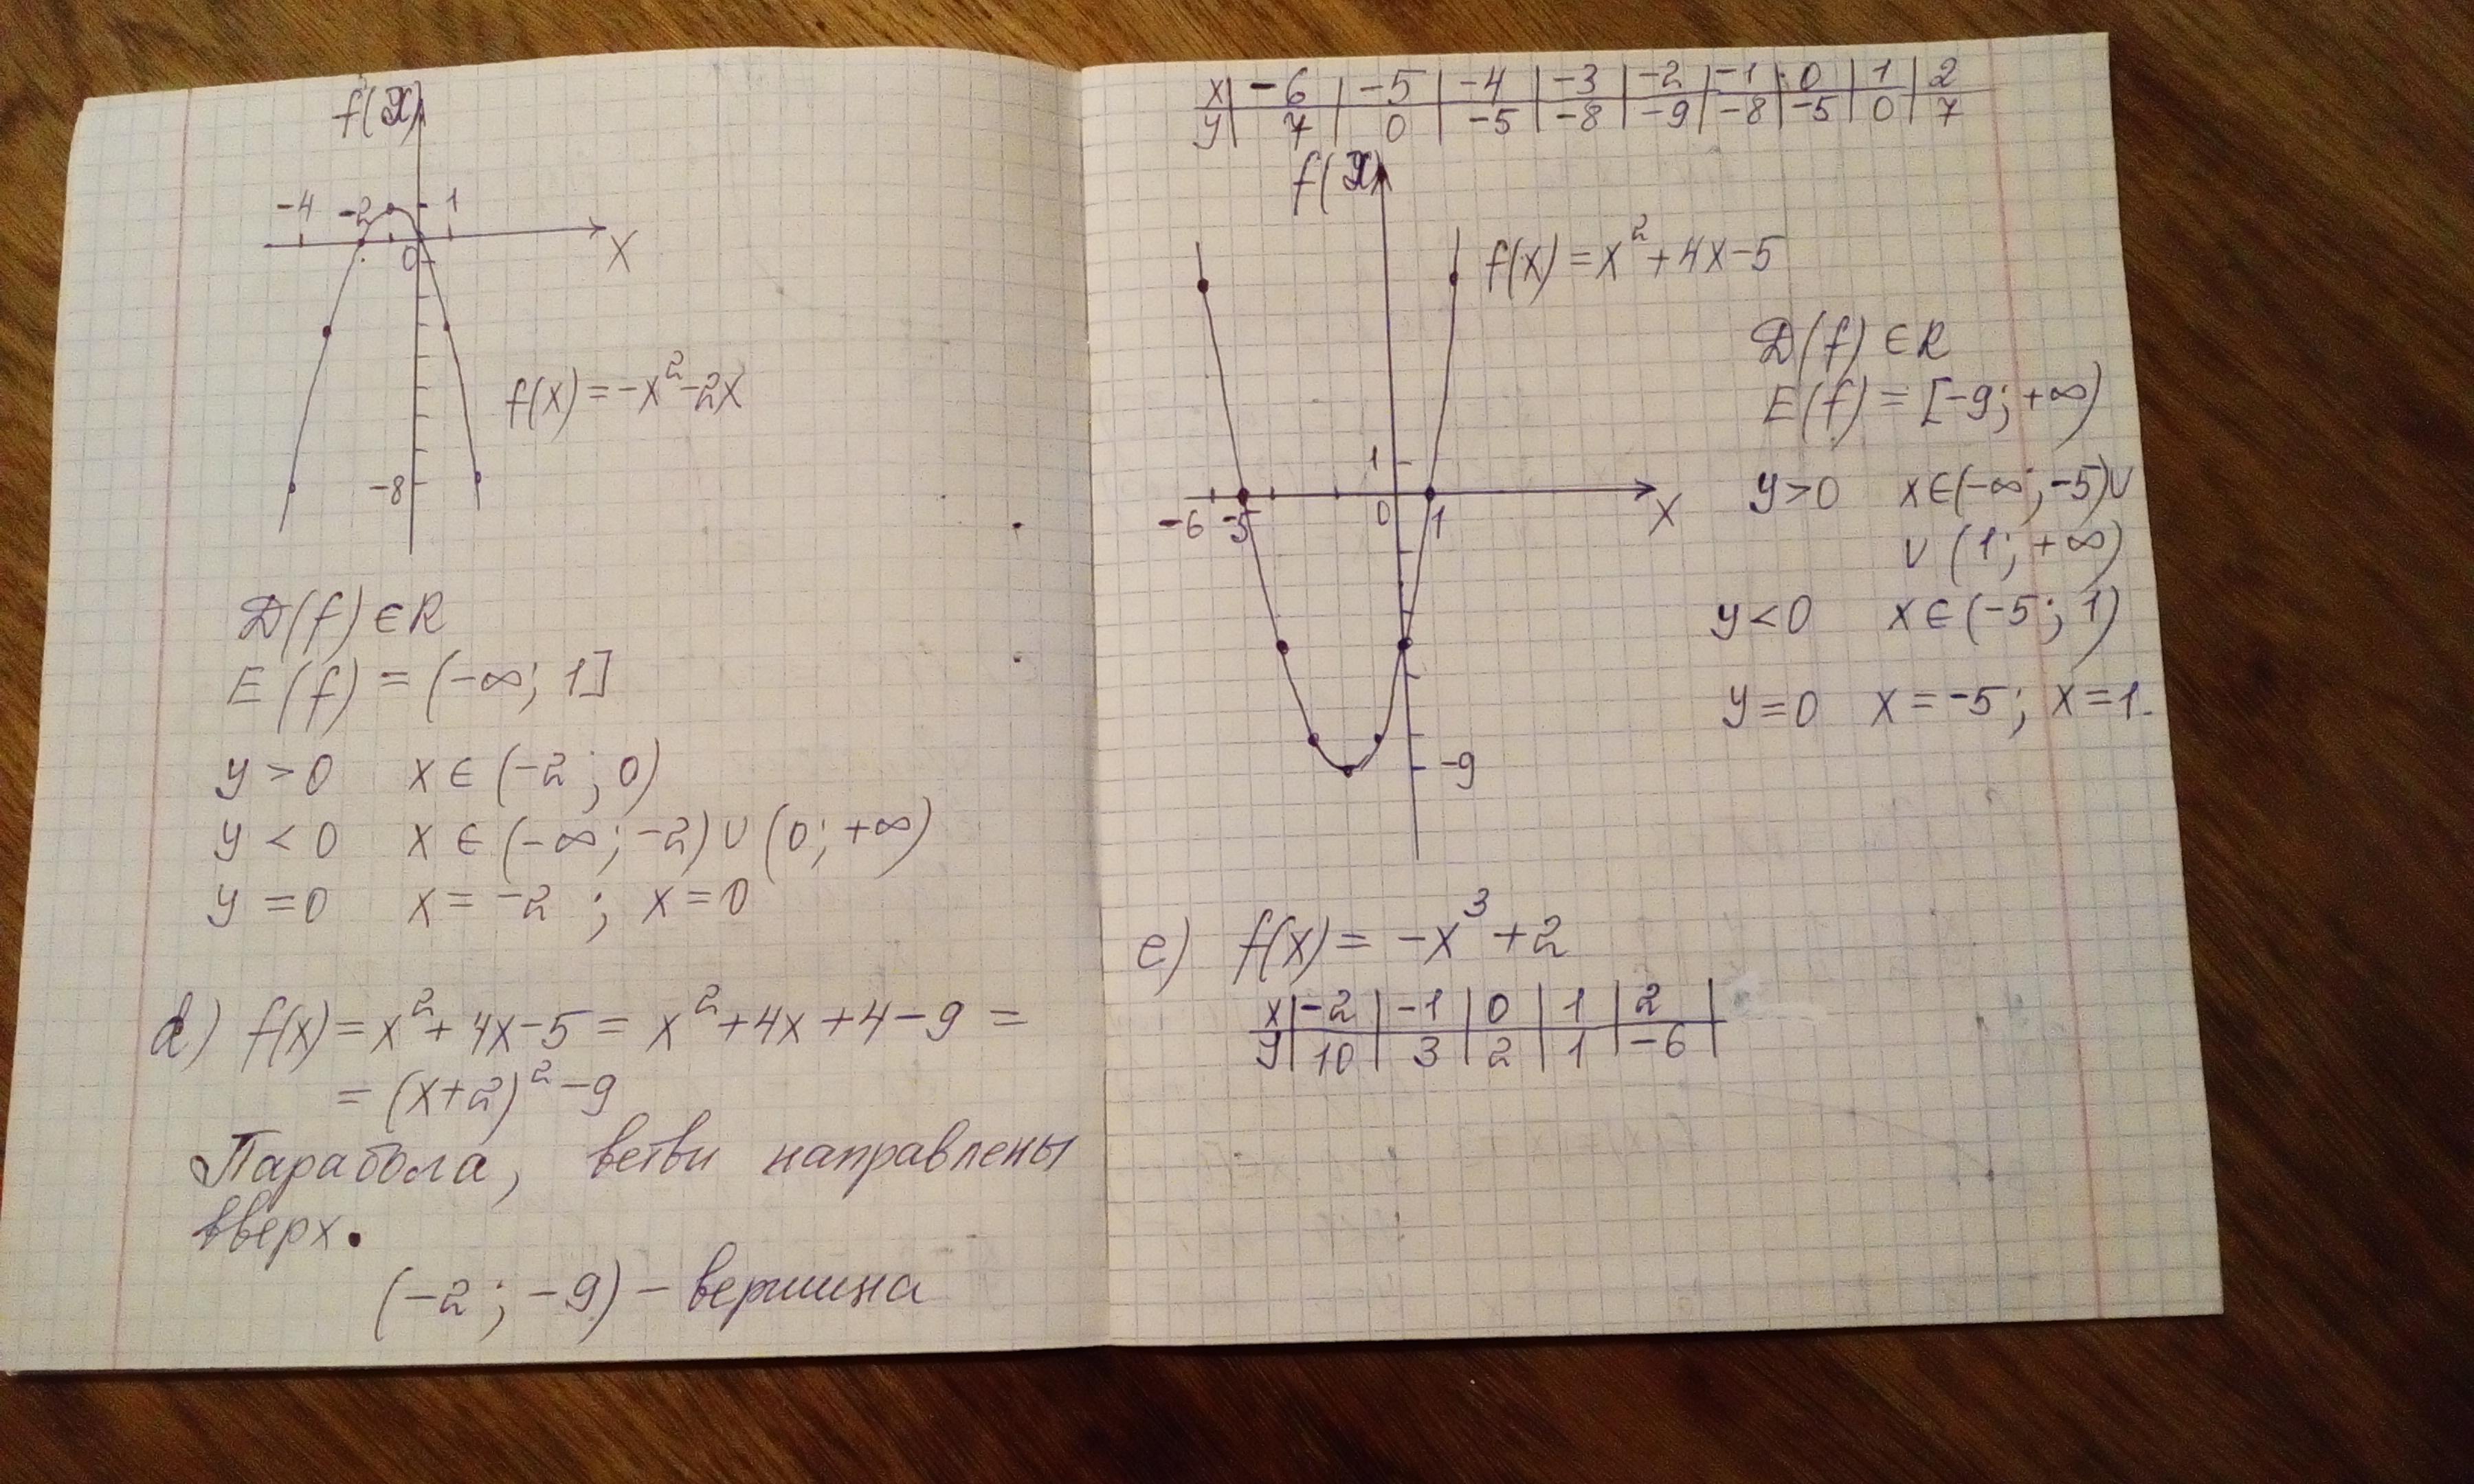 f(x)
-4 -2 1
0 X
f(x) = -x² - 2x
-8
D(f) ∈ R
E(f) = (-∞; 1]
y > 0 x ∈ (-2; 0)
y < 0 x ∈ (-∞; -2) ∪ (0; +∞)
y = 0 x = -2 ; x = 0
d) f(x) = x² + 4x - 5 = x² + 4x + 4 - 9 =
= (x+2)² - 9
Парабола, ветви направлены
вверх.
(-2; -9) - вершина
x | -6 | -5 | -4 | -3 | -2 | -1 | 0 | 1 | 2
y | 7 | 0 | -5 | -8 | -9 | -8 | -5 | 0 | 7
f(x)
f(x) = x² + 4x - 5
D(f) ∈ R
E(f) = [-9; +∞)
1
-6 -5 0 1 X
y > 0 x ∈ (-∞; -5) ∪
∪ (1; +∞)
y < 0 x ∈ (-5; 1)
y = 0 x = -5; x = 1.
-9
e) f(x) = -x³ + 2
x | -2 | -1 | 0 | 1 | 2 |
y | 10 | 3 | 2 | 1 | -6 |